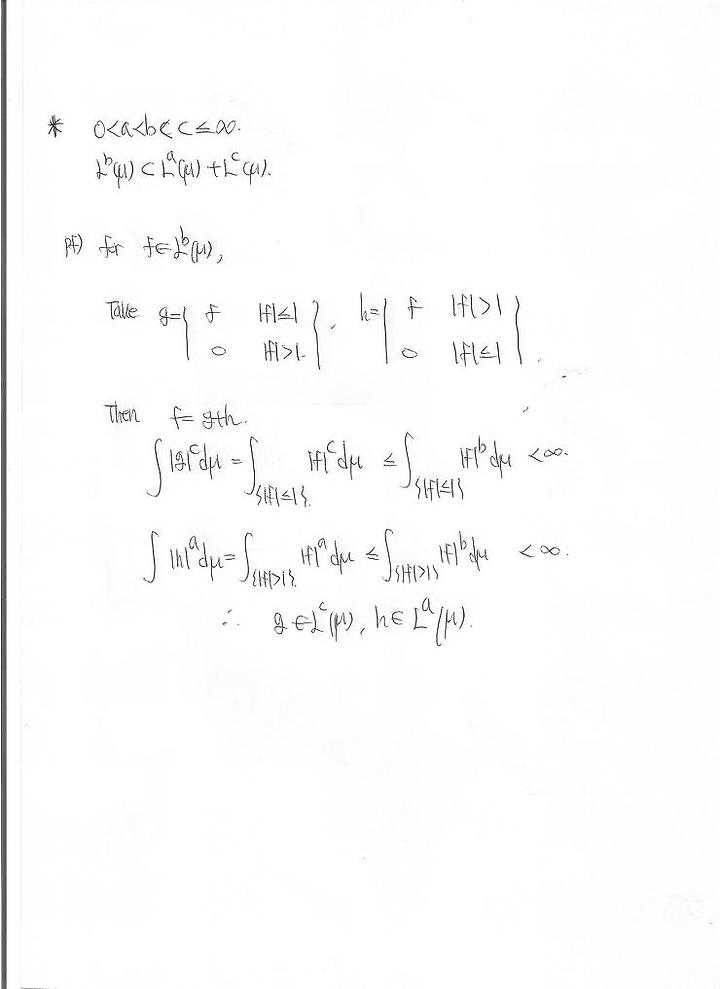 * 0<a<b<c≤∞.
L^b(μ) ⊂ L^a(μ) + L^c(μ).
pf) for f∈L^b(μ),
Take g={ f |f|≤1 }, h={ f |f|>1 }
0 |f|>1. 0 |f|≤1 .
Then f=g+h.
∫|g|^c dμ = ∫_{|f|≤1} |f|^c dμ ≤ ∫_{|f|≤1} |f|^b dμ <∞.
∫|h|^a dμ = ∫_{|f|>1} |f|^a dμ ≤ ∫_{|f|>1} |f|^b dμ <∞.
∴ g∈L^c(μ), h∈L^a(μ).